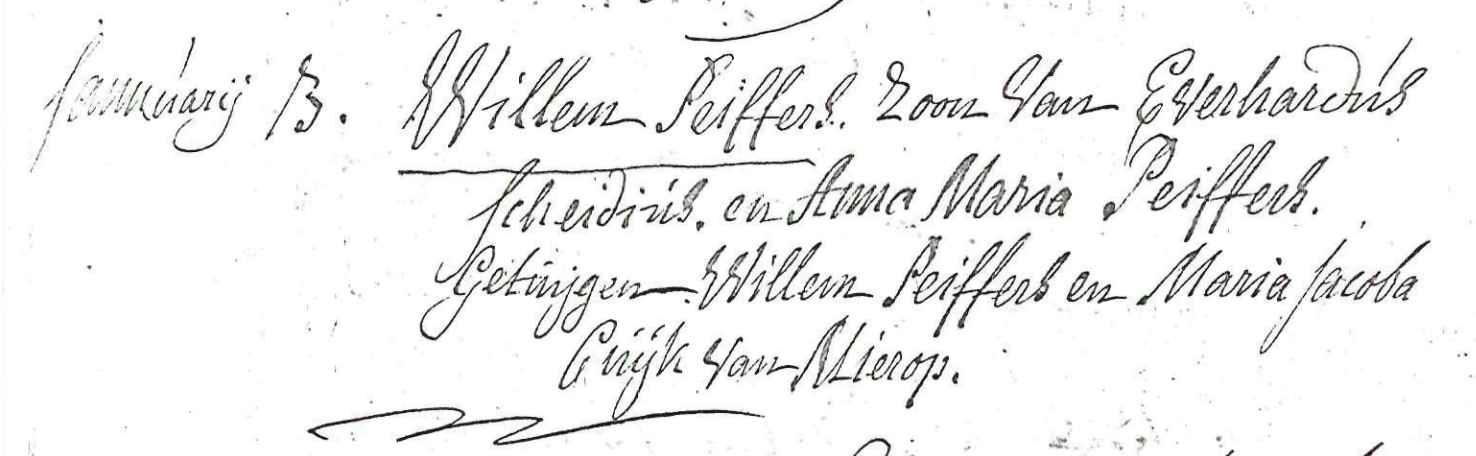 Januarij 13. Willem Peiffers. Zoon Van Everhardus
Scheidius. en Anna Maria Peiffers.
Getuijgen Willem Peiffers en Maria Jacoba
Cuijk Van Mierop.